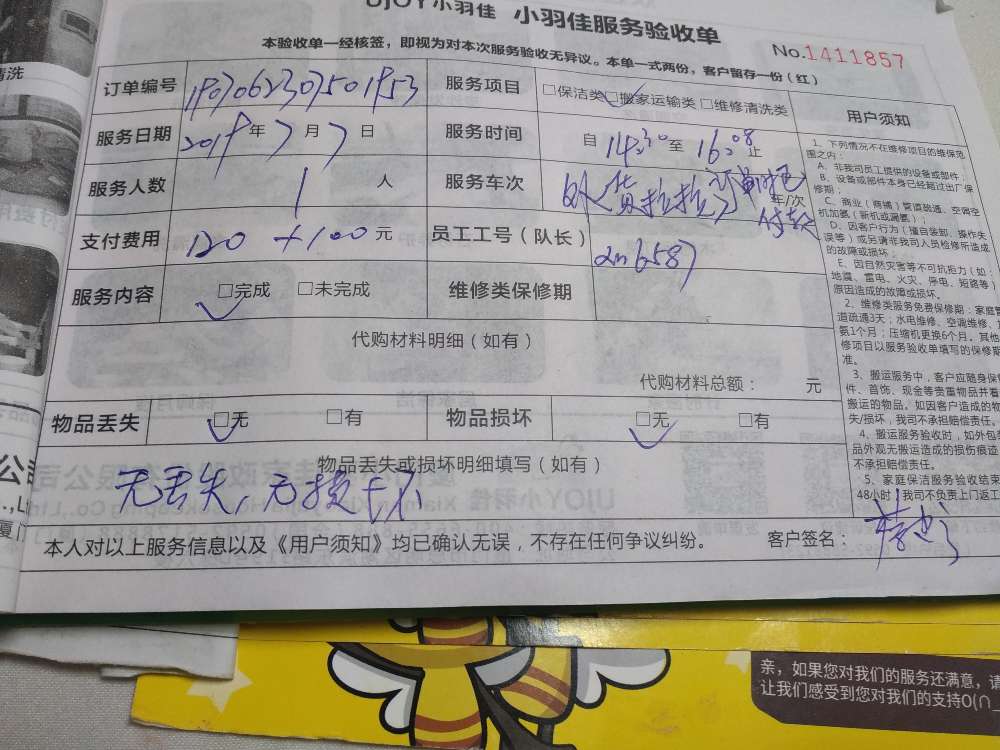 UJOY小羽佳 小羽佳服务验收单
本验收单一经核签，即视为对本次服务验收无异议。本单一式两份，客户留存一份（红）
No.1411857
订单编号 1907062307501953 服务项目 □保洁类□搬家运输类□维修清洗类 用户须知
服务日期 2019年7月7日 服务时间 自14:30至16:08止
服务人数 1人 服务车次 外 货拉拉 年/次 付款
支付费用 120+100元 员工工号（队长）
服务内容 □完成 □未完成 维修类保修期
代购材料明细（如有）
代购材料总额： 元
物品丢失 □无 □有 物品损坏 □无 □有
物品丢失或损坏明细填写（如有）
无丢失，无损坏
本人对以上服务信息以及《用户须知》均已确认无误，不存在任何争议纠纷。 客户签名：
1、下列情况不在维修项目的维保范
围之内：
A、非我司员工提供的设备或部件；
B、设备或部件本身已经超过出厂保
修期；
C、商业（商铺）管道疏通、空调空
机加氨（新机或漏氨）；
D、因客户行为（擅自装卸、操作失
误等）或另请非我司人员检修所造成
的故障或损坏；
E、因自然灾害等不可抗拒力（如：
地震、雷电、火灾、停电、短路等）
原因造成的故障或损坏。
2、维修类服务免费保修期：家庭管
道疏通3天；水电维修、空调维修、
氨1个月；压缩机更换6个月。其他
修项目以服务验收单填写的保修期
准。
3、搬运服务中，客户应随身保
件、首饰、现金等贵重物品并看
搬运的物品。如因客户造成的物
失/损坏，我司不承担赔偿责任。
4、搬运服务验收时，如外包
品外观无搬运造成的损伤痕迹
不承担赔偿责任。
5、家庭保洁服务验收结束
48小时，我司不负责上门返工
清洗
亲，如果您对我们的服务还满意，请
让我们感受到您对我们的支持O(∩_